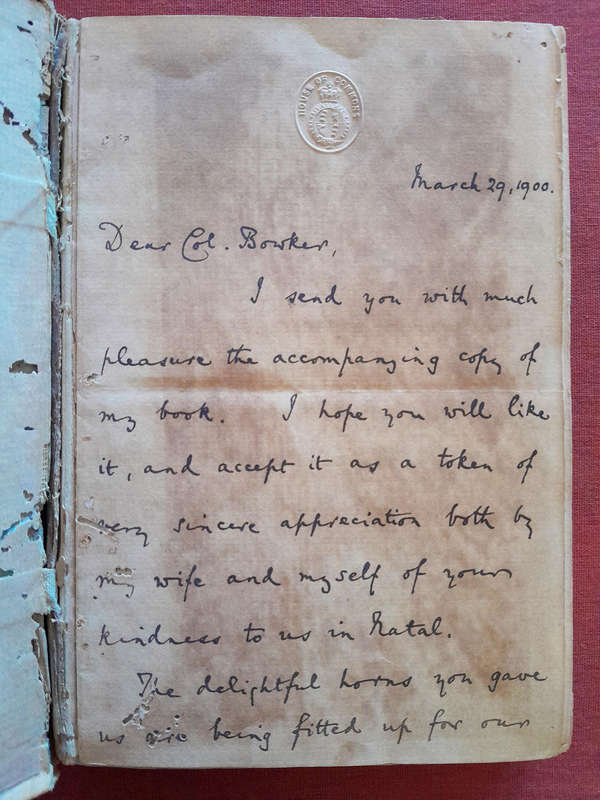 HOUSE OF COMMONS
March 29, 1900.
Dear Col. Bowker,
I send you with much
pleasure the accompanying copy of
my book. I hope you will like
it, and accept it as a token of
very sincere appreciation both by
my wife and myself of your
kindness to us in Natal.
The delightful horns you gave
us are being fitted up for our